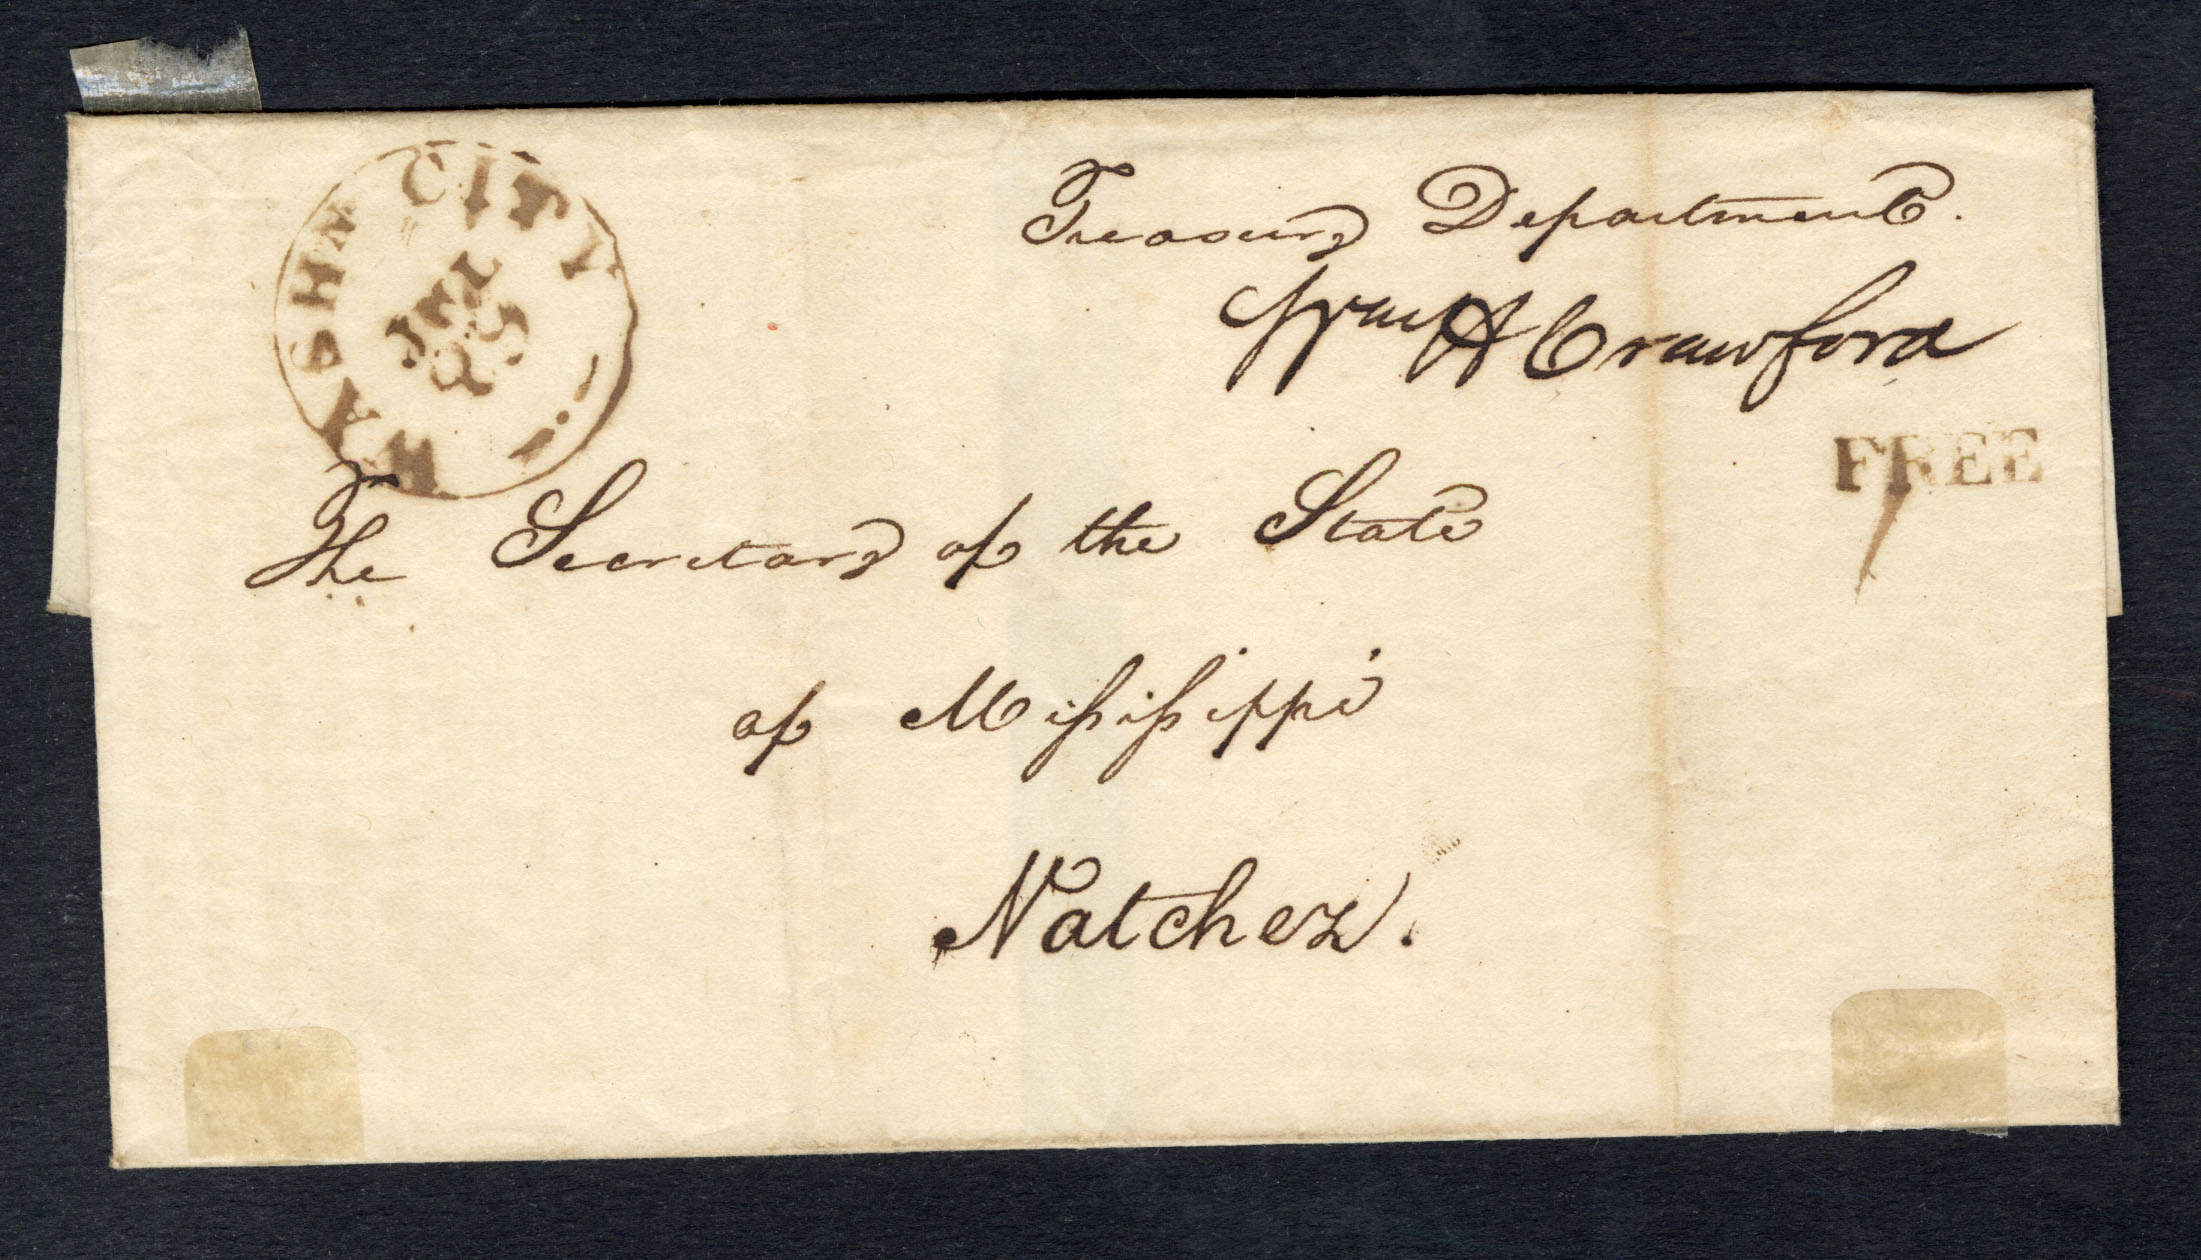 WASHN CITY
JUL
Treasury Department.
Wm H Crawford
FREE
The Secretary of the State
of Mississippi
Natchez.